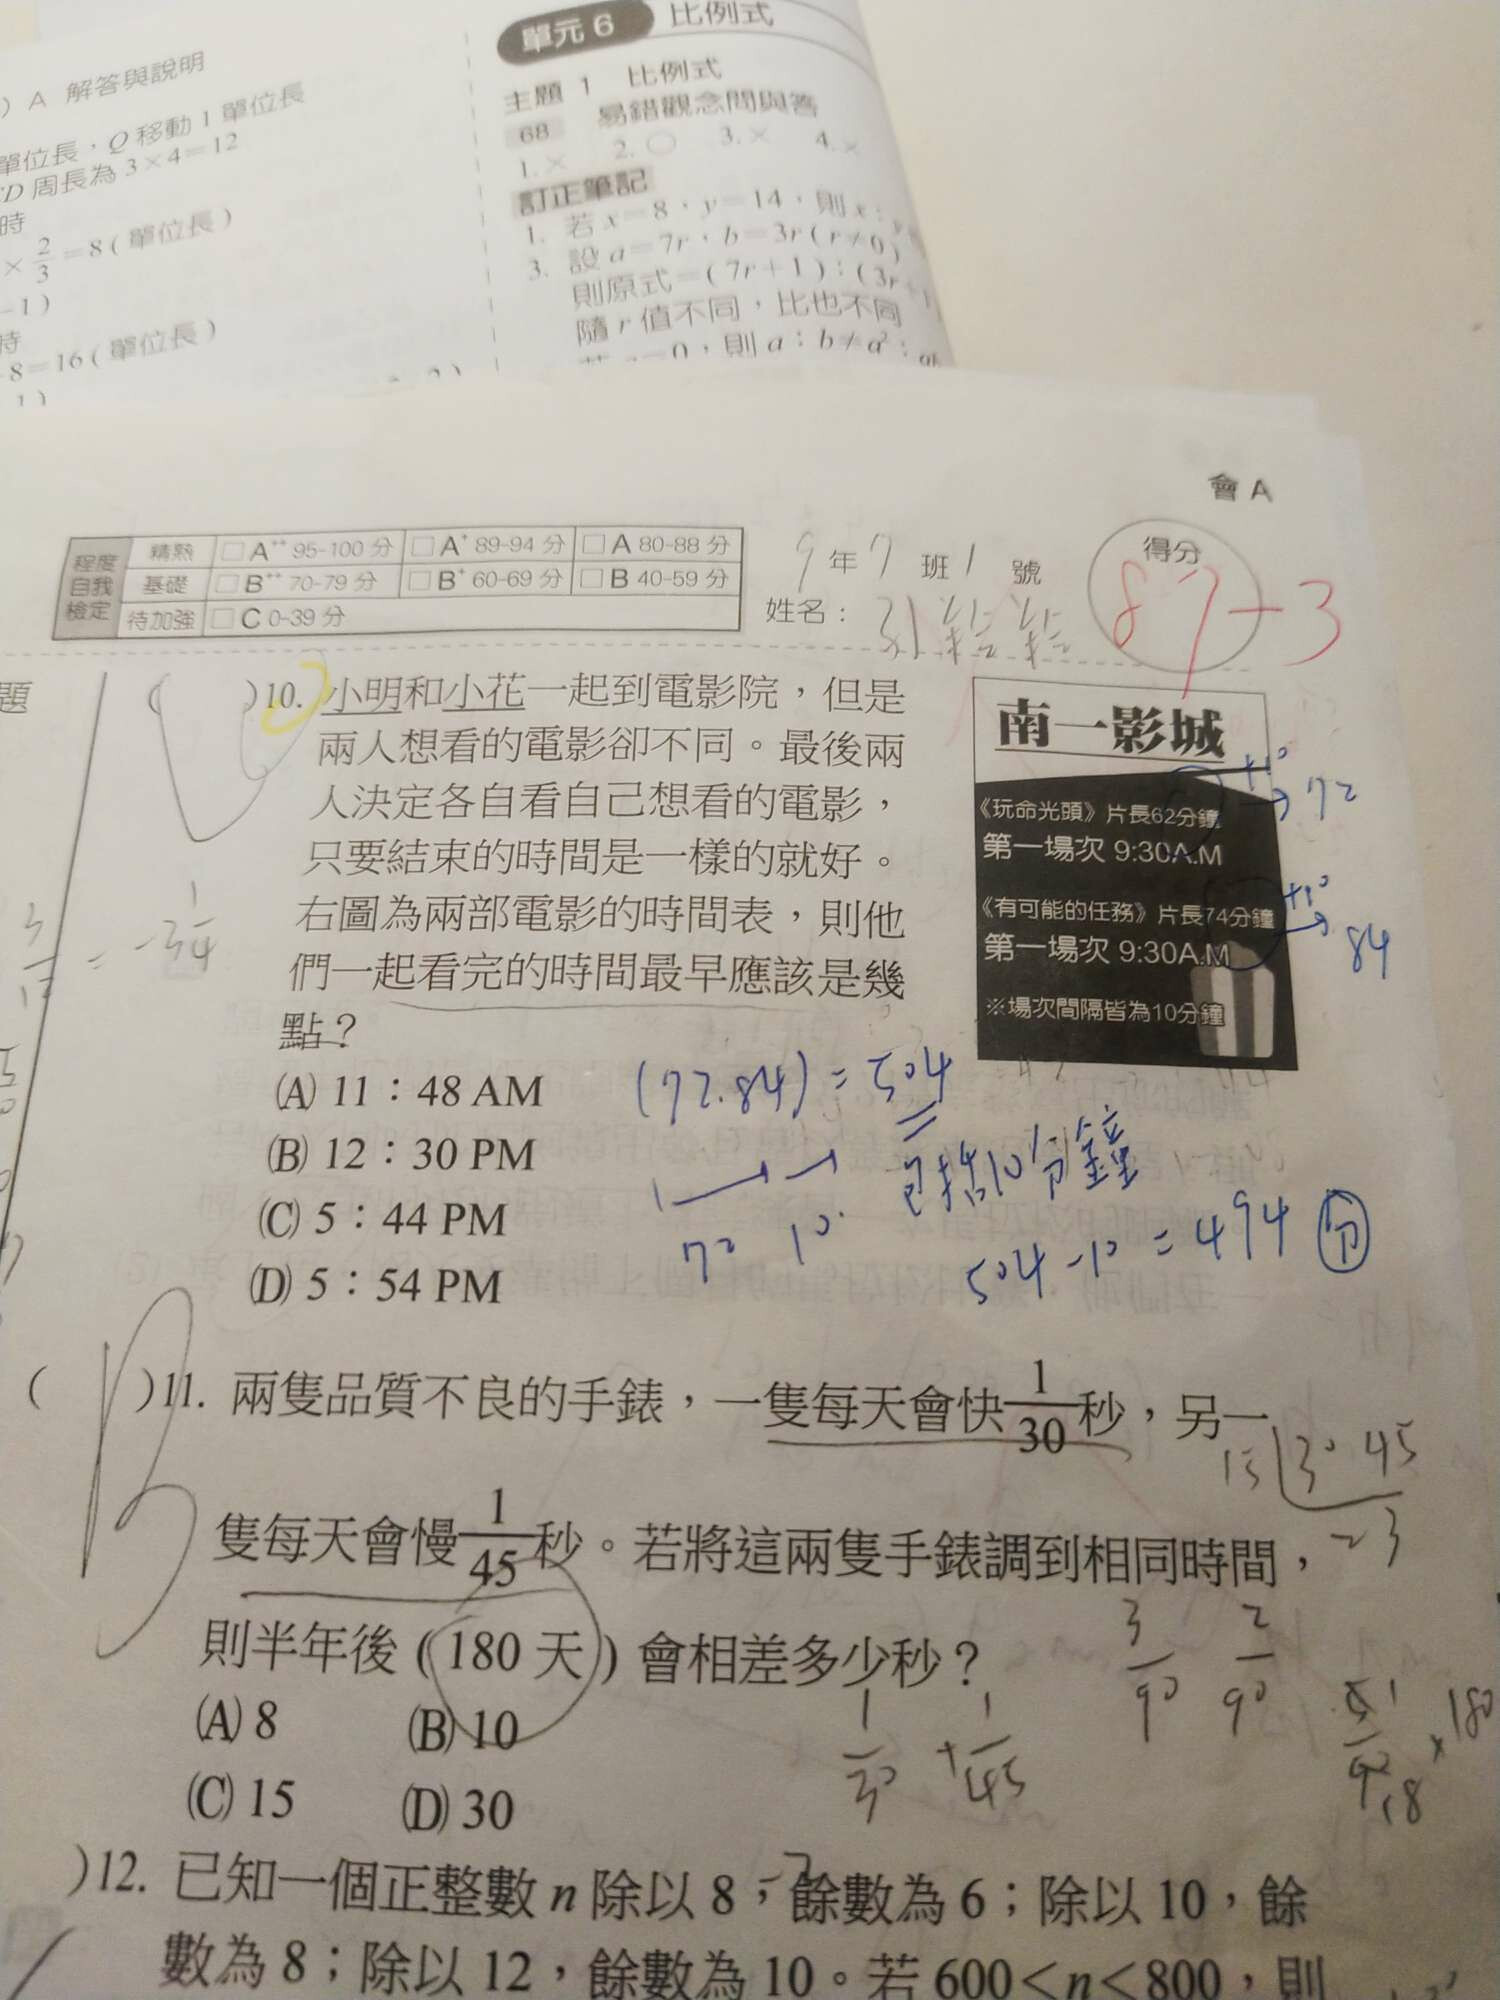 ) A 解答與說明
單位長，Q 移動 1 單位長
CD 周長為 3×4＝12
時
× 2/3 ＝8(單位長)
-1)
時
8＝16(單位長)
單元 6 比例式
主題 1 比例式
68 易錯觀念問與答
1. × 2. ○ 3. × 4. ×
訂正筆記
1. 若 x＝8，y＝14，則 x：
3. 設 a＝7r，b＝3r(r≠0)
則原式＝(7r＋1)：(3r
隨 r 值不同，比也不同
＝0，則 a：b≠a²：
會 A
程度自我檢定
精熟 □A⁺⁺ 95-100 分 □A⁺ 89-94 分 □A 80-88 分
基礎 □B⁺⁺ 70-79 分 □B⁺ 60-69 分 □B 40-59 分
待加強 □C 0-39 分
9 年 7 班 1 號
姓名：
得分
87-3
題
( )10. 小明和小花一起到電影院，但是
兩人想看的電影卻不同。最後兩
人決定各自看自己想看的電影，
只要結束的時間是一樣的就好。
右圖為兩部電影的時間表，則他
們一起看完的時間最早應該是幾
點？
(A) 11：48 AM
(B) 12：30 PM
(C) 5：44 PM
(D) 5：54 PM
南一影城
《玩命光頭》片長62分鐘
第一場次 9:30A.M
《有可能的任務》片長74分鐘
第一場次 9:30A.M
※場次間隔皆為10分鐘
+10
72
+10
84
(72.84)=504
包括10分鐘
72 10
504-10=494 分
= -3 1/4
( )11. 兩隻品質不良的手錶，一隻每天會快 1/30 秒，另一
隻每天會慢 1/45 秒。若將這兩隻手錶調到相同時間，
則半年後(180 天)會相差多少秒？
(A) 8 (B) 10
(C) 15 (D) 30
B
15 30 45
3/90 2/90
1/30 + 1/45
×180
18
)12. 已知一個正整數 n 除以 8，餘數為 6；除以 10，餘
數為 8；除以 12，餘數為 10。若 600<n<800，則